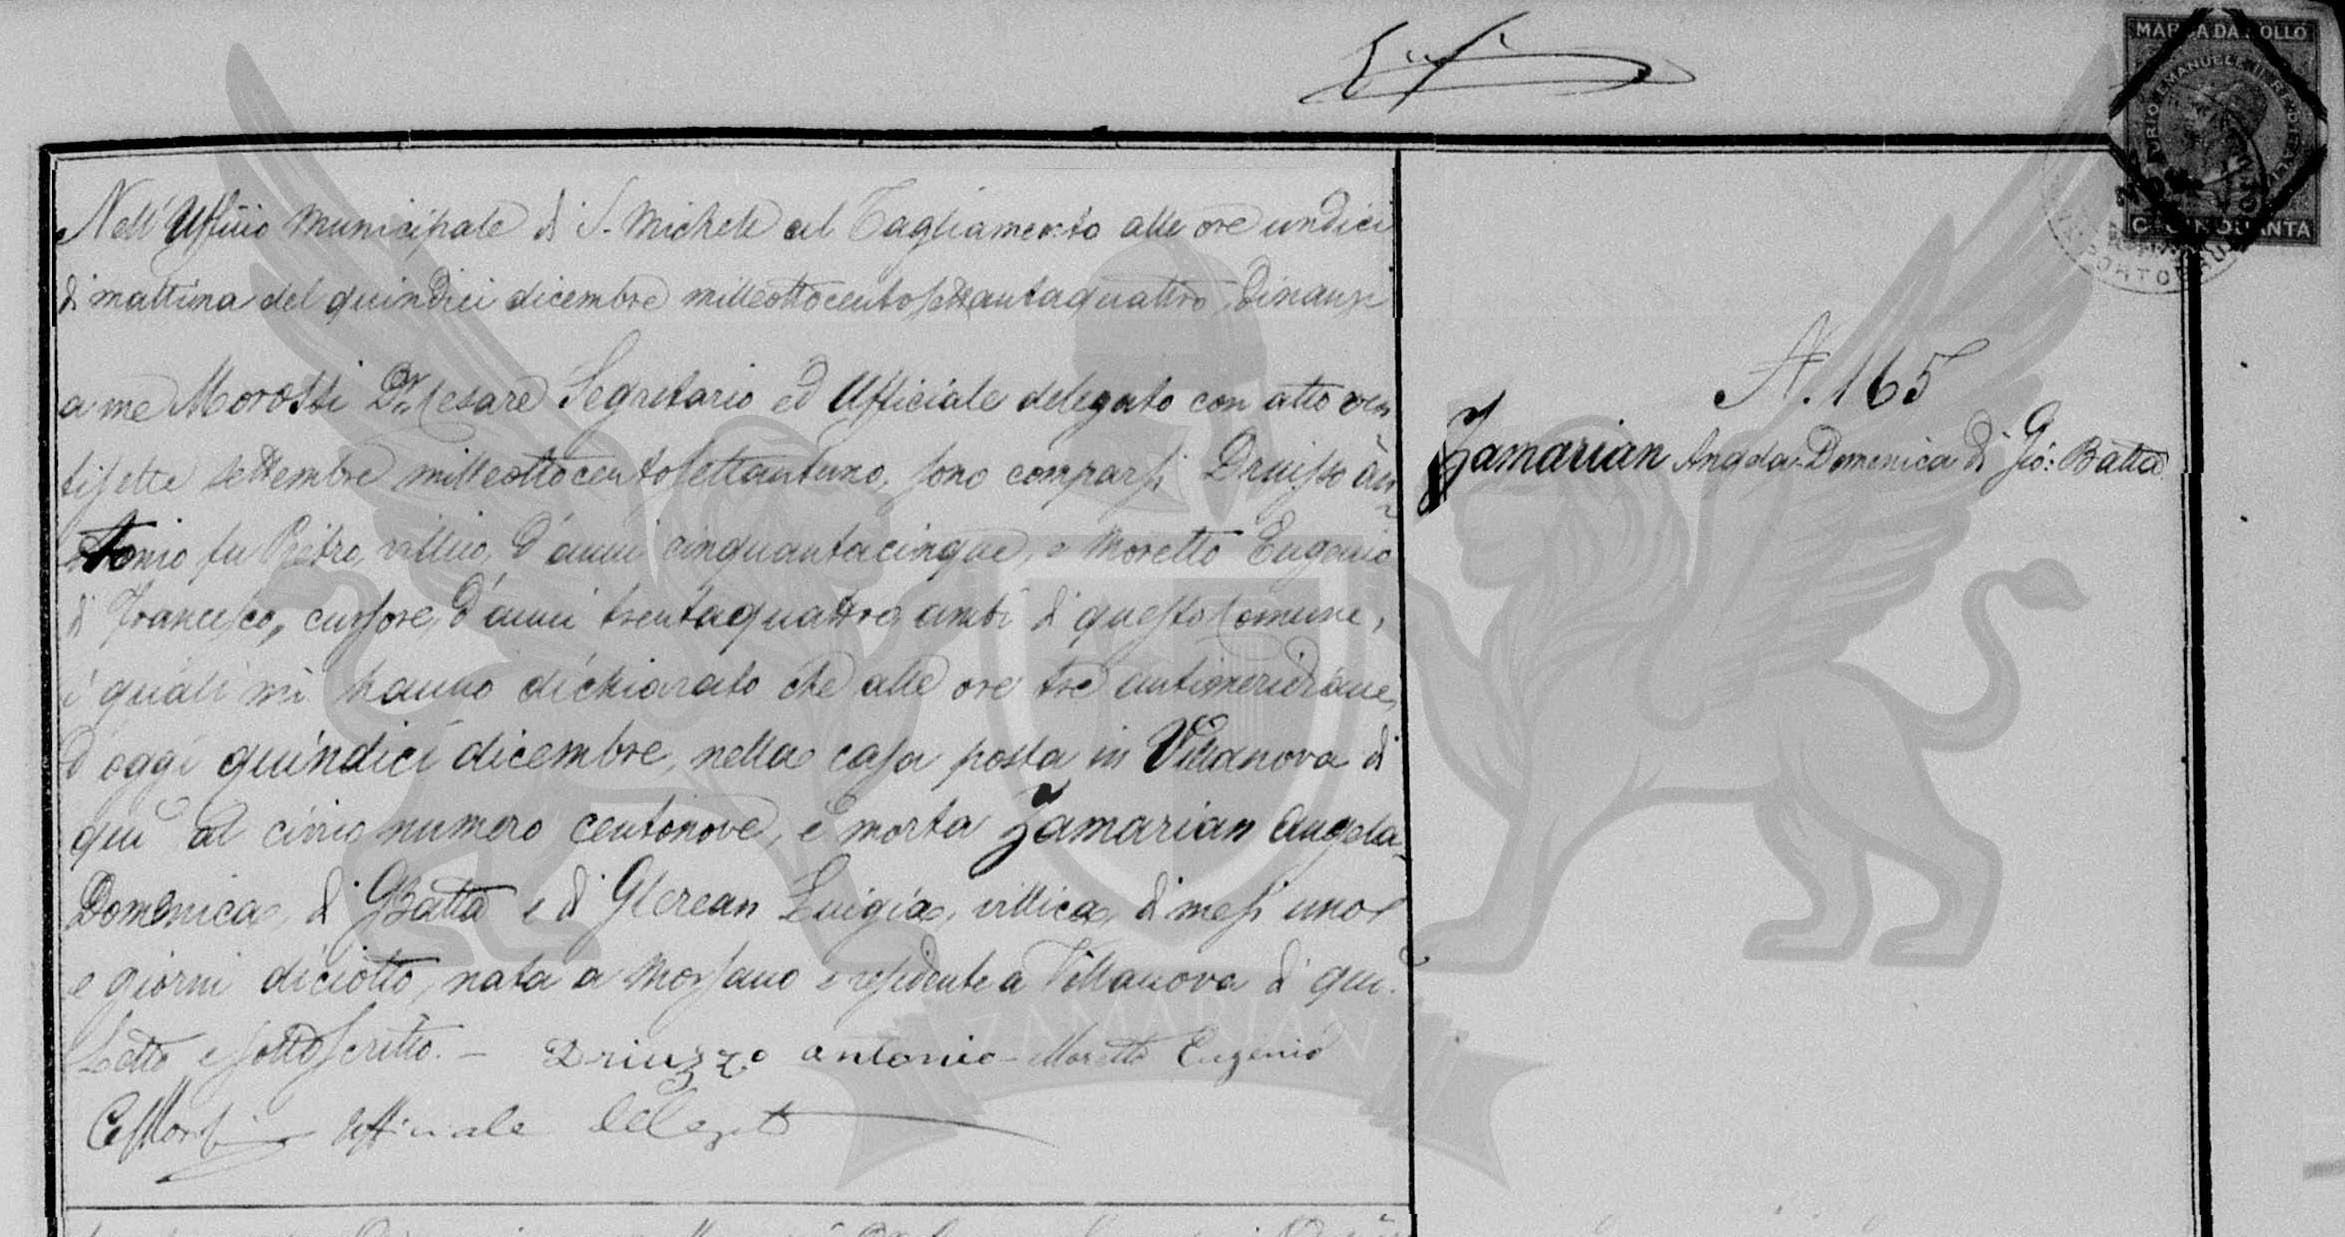 MARCA DA BOLLO
CINQUANTA
Nell'Uffizio Municipale di S. Michele al Tagliamento alle ore undici
di mattina del quindici dicembre milleottocentosettantaquattro, dinanzi
a me Morossi Dr. Cesare Segretario ed Ufficiale delegato con atto ven
tisette settembre milleottocentosettantuno, sono comparsi Driusso An
tonio fu Pietro, villico, d'anni cinquantacinque, e Moretto Eugenio
di Francesco, cursore, d'anni trentaquattro ambi di questo Comune,
i quali mi hanno dichiarato che alle ore tre antimeridiane,
d'oggi quindici dicembre, nella casa posta in Villanova di
qui al civico numero centonove, è morta Zamarian Angela-
Domenica, di GBatta e di Glerean Luigia, villica, di mesi uno
e giorni diciotto, nata a Morsano e residente a Villanova di qui.
Letto e sottoscritto. - Driuzzo Antonio - Moretto Eugenio
Ufficiale Delegato
N. 165
Zamarian Angela-Domenica di Gio: Batta
ZAMARIAN